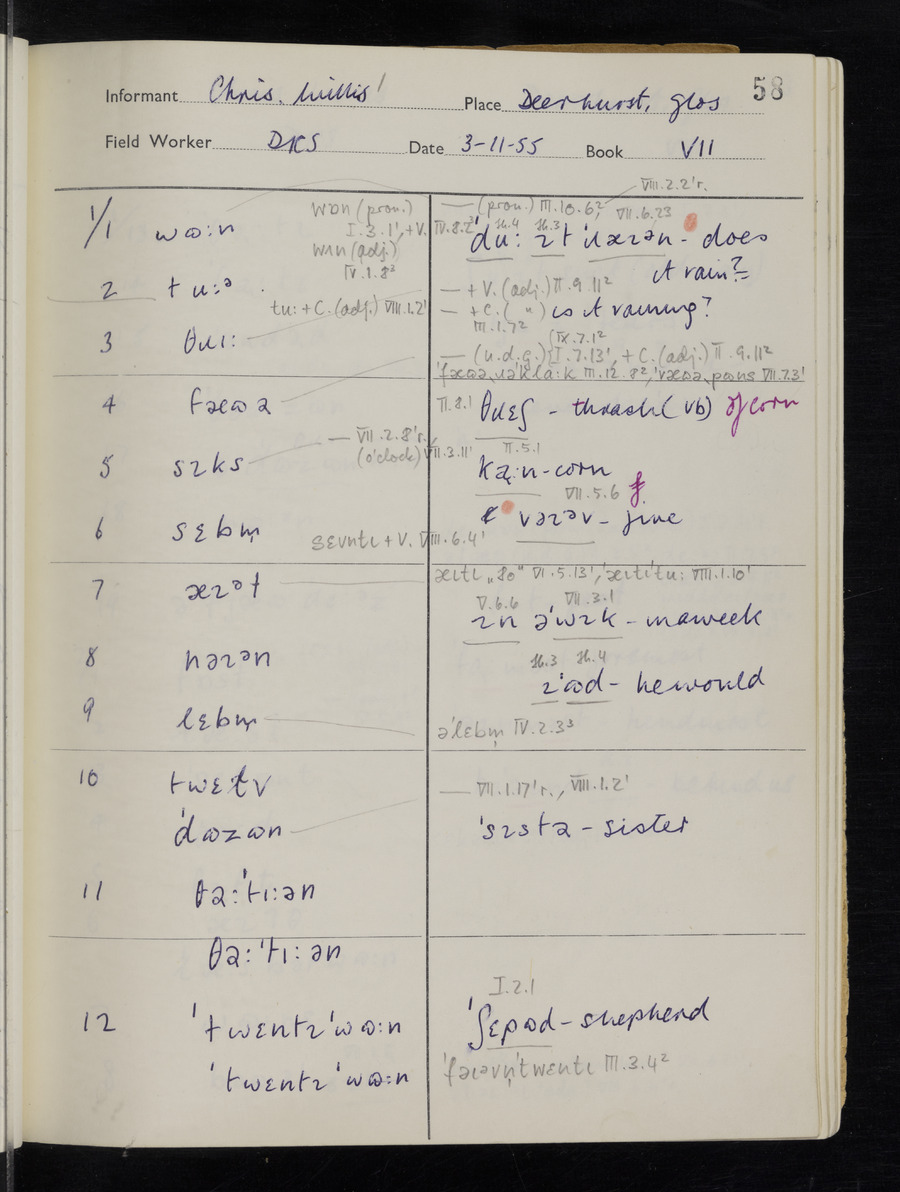 58
Informant Chris. Willis' Place Deerhurst, Glos
Field Worker DRS Date 3-11-55 Book VII
1/1 wɷ:n
wɒn (pron.)
I.3.1', +V. IV.8.2³
wɪn (adj.)
IV.1.8³
— (pron.) III.10.6², VIII.2.2'r.
VII.6.23
sh.4 sh.3
ˈdu: ɪt ˈɹæɪən - does
it rain?
2 tu:ə
tu: + C. (adj.) VIII.1.2'
— + V. (adj.) II.9.11²
— + C. ( " ) is it raining?
III.1.7²
3 θɹi:
IX.7.1²
— (u.d.g.) I.7.13', + C. (adj.) II.9.11²
III.12.8², VII.7.3'
4 fæɷə
II.8.1 θɹɛʃ - thrash (vb) of corn
5 sɪks
— VII.2.8'r.,
(o'clock) VII.3.11'
II.5.1
kɑ:n - corn
6 sɛbm̩
sɛvntɪ + V. VIII.6.4'
VII.5.6 f
vəɪəv - five
7 æɪət
æɪtɪ „80" VI.5.13', ˈæɪtɪˈtu: VIII.1.10'
V.6.6 VII.3.1
ɪn əˈwɪk - in a week
8 nəɪən
sh.3 sh.4
ɪˈɷd - he would
9 lɛbm̩
əˈlɛbm̩ IV.2.3³
10 twɛlv
ˈdɷzɷn
— VII.1.17'r., VIII.1.2'
ˈsɪstə - sister
11 θə:ˈti:ən
θə:ˈti:ən
12 ˈtwɛntɪˈwɷ:n
ˈtwɛntɪˈwɷ:n
I.2.1
ˈʃɛpɷd - shepherd
ˈfəɪəvn̩ˈtwɛntɪ III.3.4²